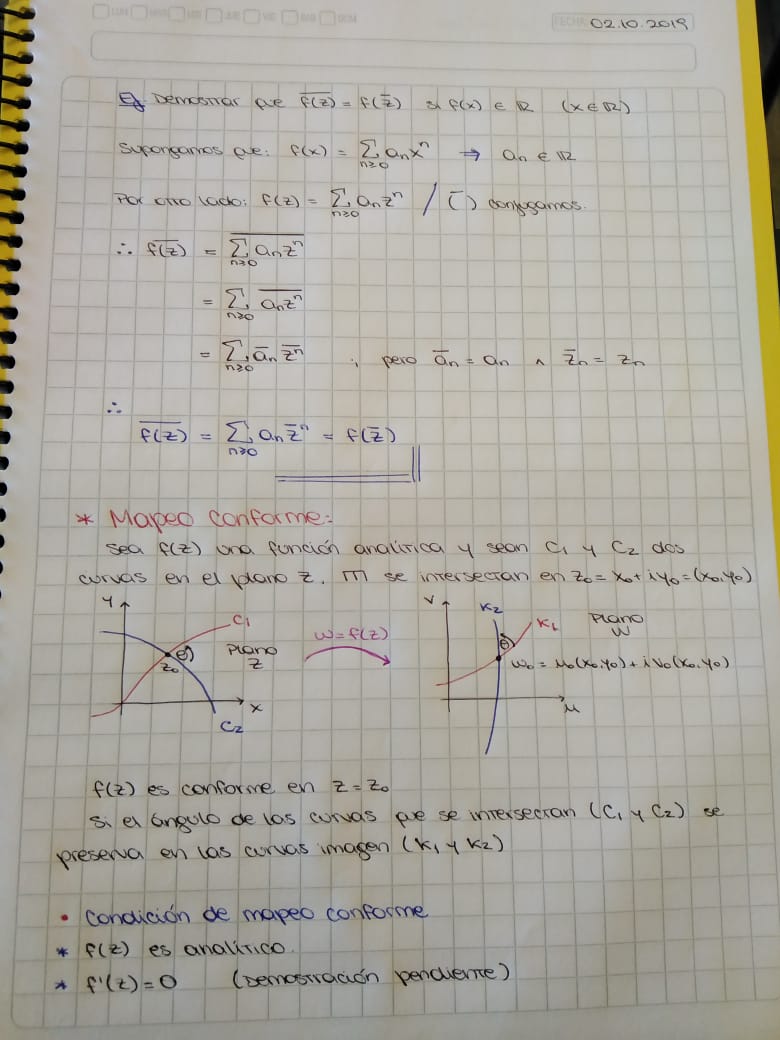 LUN MAR MIE JUE VIE SAB DOM
FECHA 02.10.2019
Ej Demostrar que \overline{f(z)} = f(\bar{z}) si f(x) ∈ ℝ (x ∈ ℝ)
Supongamos que: f(x) = ∑_{n≥0} a_n x^n ⇒ a_n ∈ ℝ
Por otro lado: f(z) = ∑_{n≥0} a_n z^n / \overline{( )} conjugamos.
∴ \overline{f(z)} = \overline{∑_{n≥0} a_n z^n}
= ∑_{n≥0} \overline{a_n z^n}
= ∑_{n≥0} \bar{a}_n \overline{z^n} ; pero \bar{a}_n = a_n ∧ \bar{z}_n = z_n
∴
\overline{f(z)} = ∑_{n≥0} a_n \bar{z}^n = f(\bar{z})
* Mapeo conforme:
Sea f(z) una función analítica y sean C₁ y C₂ dos
curvas en el plano z. m se intersectan en z₀ = x₀ + iy₀ = (x₀, y₀)
y C₁ Plano z θ z₀ x C₂
w = f(z)
v K₂ K₁ Plano w θ w₀ = μ₀(x₀, y₀) + i v₀(x₀, y₀) μ
f(z) es conforme en z = z₀
si el ángulo de las curvas que se intersectan (C₁ y C₂) se
preserva en las curvas imagen (K₁ y K₂)
• Condición de mapeo conforme
* f(z) es analítico.
* f'(z) = 0 (Demostración pendiente)